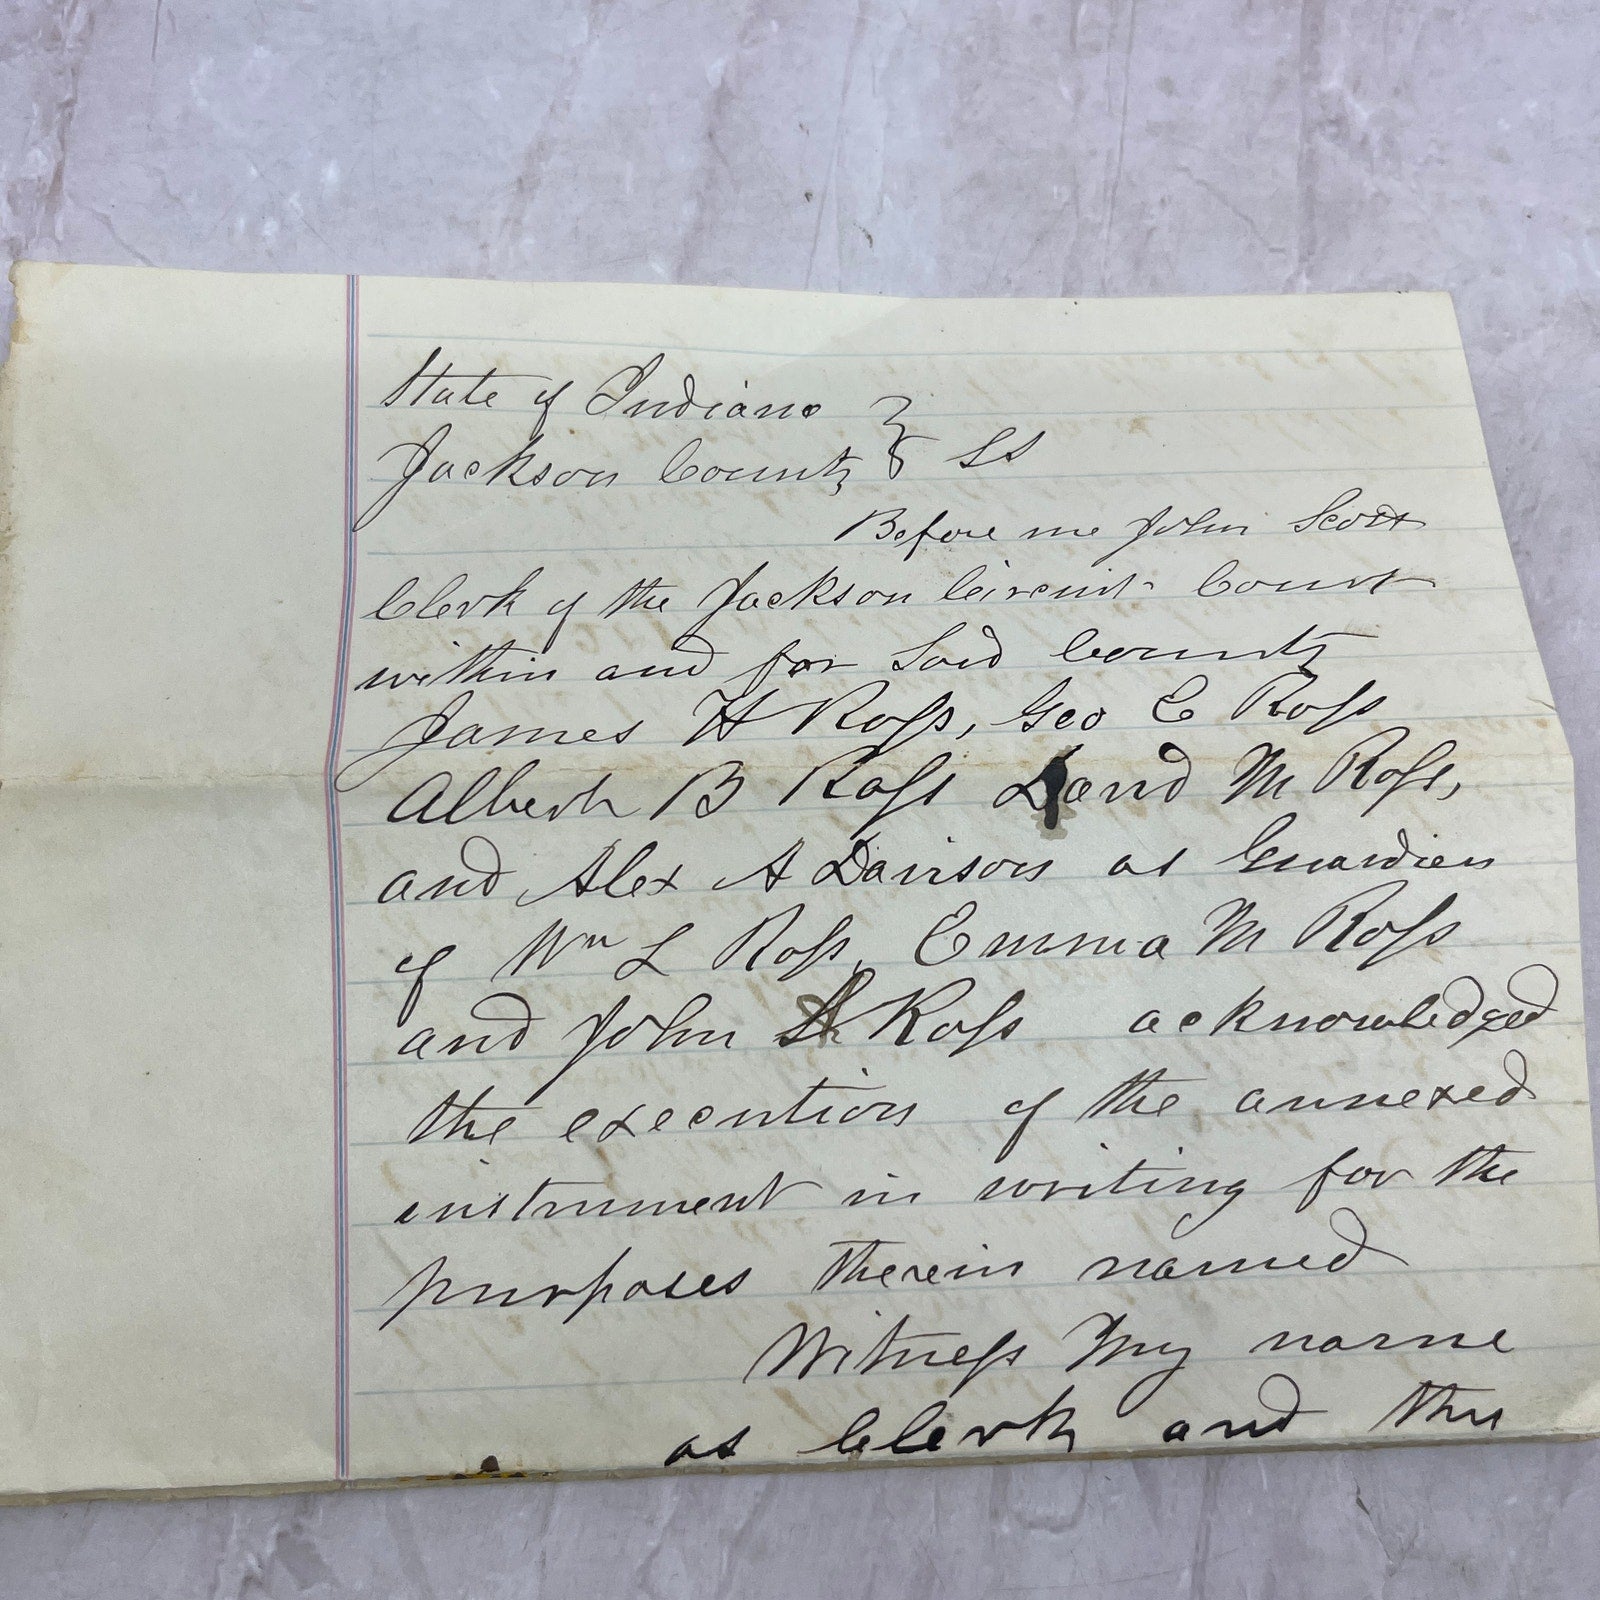 State of Indiana }
Jackson County } SS
Before me John Scott
Clerk of the Jackson Circuit Court
within and for Said County
James H Ross, Geo E Ross
Albert B Ross David M Ross,
and Alex A Davison as Guardian
of Wm L Ross, Emma M Ross
and John Ross acknowledged
the execution of the annexed
instrument in writing for the
purposes therein named
Witness My name
as Clerk and the